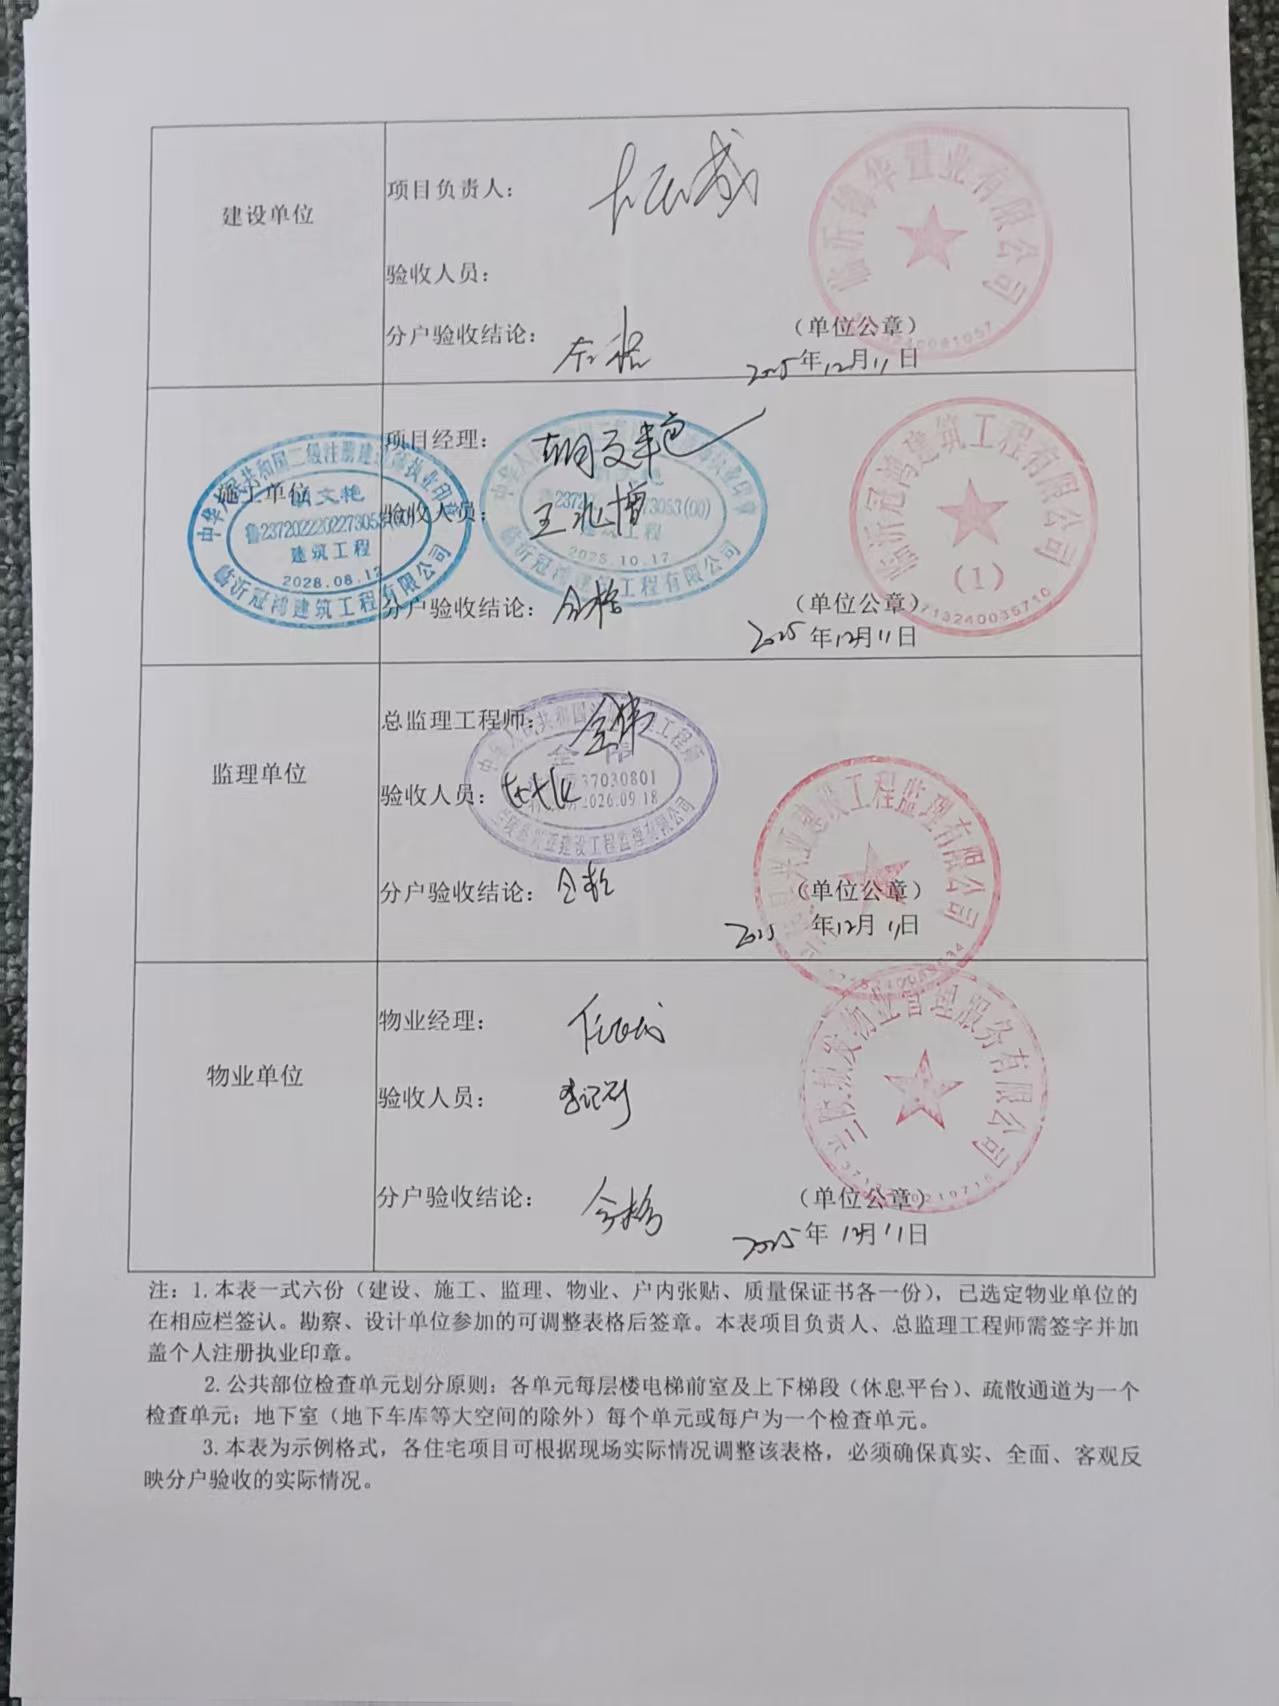 建设单位
项目负责人：
验收人员：
分户验收结论： 合格
（单位公章）
2025年12月11日
临沂 华置业有限公司
施工单位
项目经理： 胡文艳
验收人员： 王兆增
分户验收结论： 合格
（单位公章）
2025年12月11日
中华人民共和国二级注册建造师执业印章
胡文艳
鲁2372022202273053(00)
建筑工程
2028.08.12
临沂冠鸿建筑工程有限公司
中华人
鲁2372 73053(00)
建筑工程
2025.10.17
临沂冠鸿建筑工程有限公司
临沂冠鸿建筑工程有限公司
（1）
3713240035710
监理单位
总监理工程师： 全伟
验收人员：
分户验收结论： 合格
（单位公章）
2025年12月11日
中华人民共和国 工程师
全伟
37030801
2026.09.18
兴亚建设工程监理有限公司
兴亚建设工程监理有限公司
物业单位
物业经理：
验收人员：
分户验收结论： 合格
（单位公章）
2025年12月11日
兰陵城发物业管理服务有限公司
注：1.本表一式六份（建设、施工、监理、物业、户内张贴、质量保证书各一份），已选定物业单位的
在相应栏签认。勘察、设计单位参加的可调整表格后签章。本表项目负责人、总监理工程师需签字并加
盖个人注册执业印章。
2.公共部位检查单元划分原则：各单元每层楼电梯前室及上下梯段（休息平台）、疏散通道为一个
检查单元；地下室（地下车库等大空间的除外）每个单元或每户为一个检查单元。
3.本表为示例格式，各住宅项目可根据现场实际情况调整该表格，必须确保真实、全面、客观反
映分户验收的实际情况。